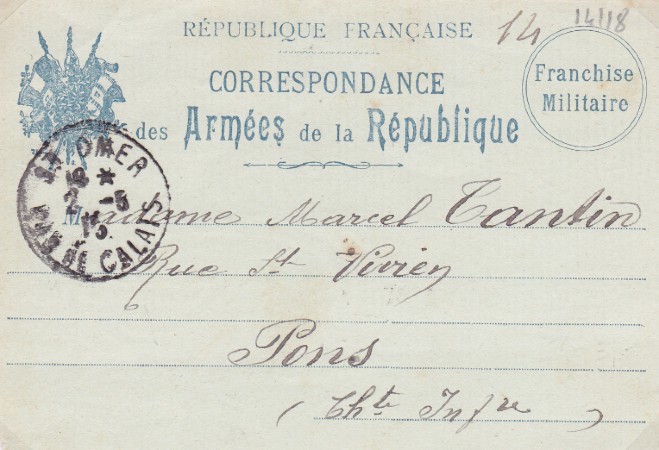 RÉPUBLIQUE FRANÇAISE
14
14/18
CORRESPONDANCE
des Armées de la République
Franchise
Militaire
ST OMER
PAS DE CALAIS
Madame Marcel Tantin
Rue St Vivien
Pons
(Chte Infre)